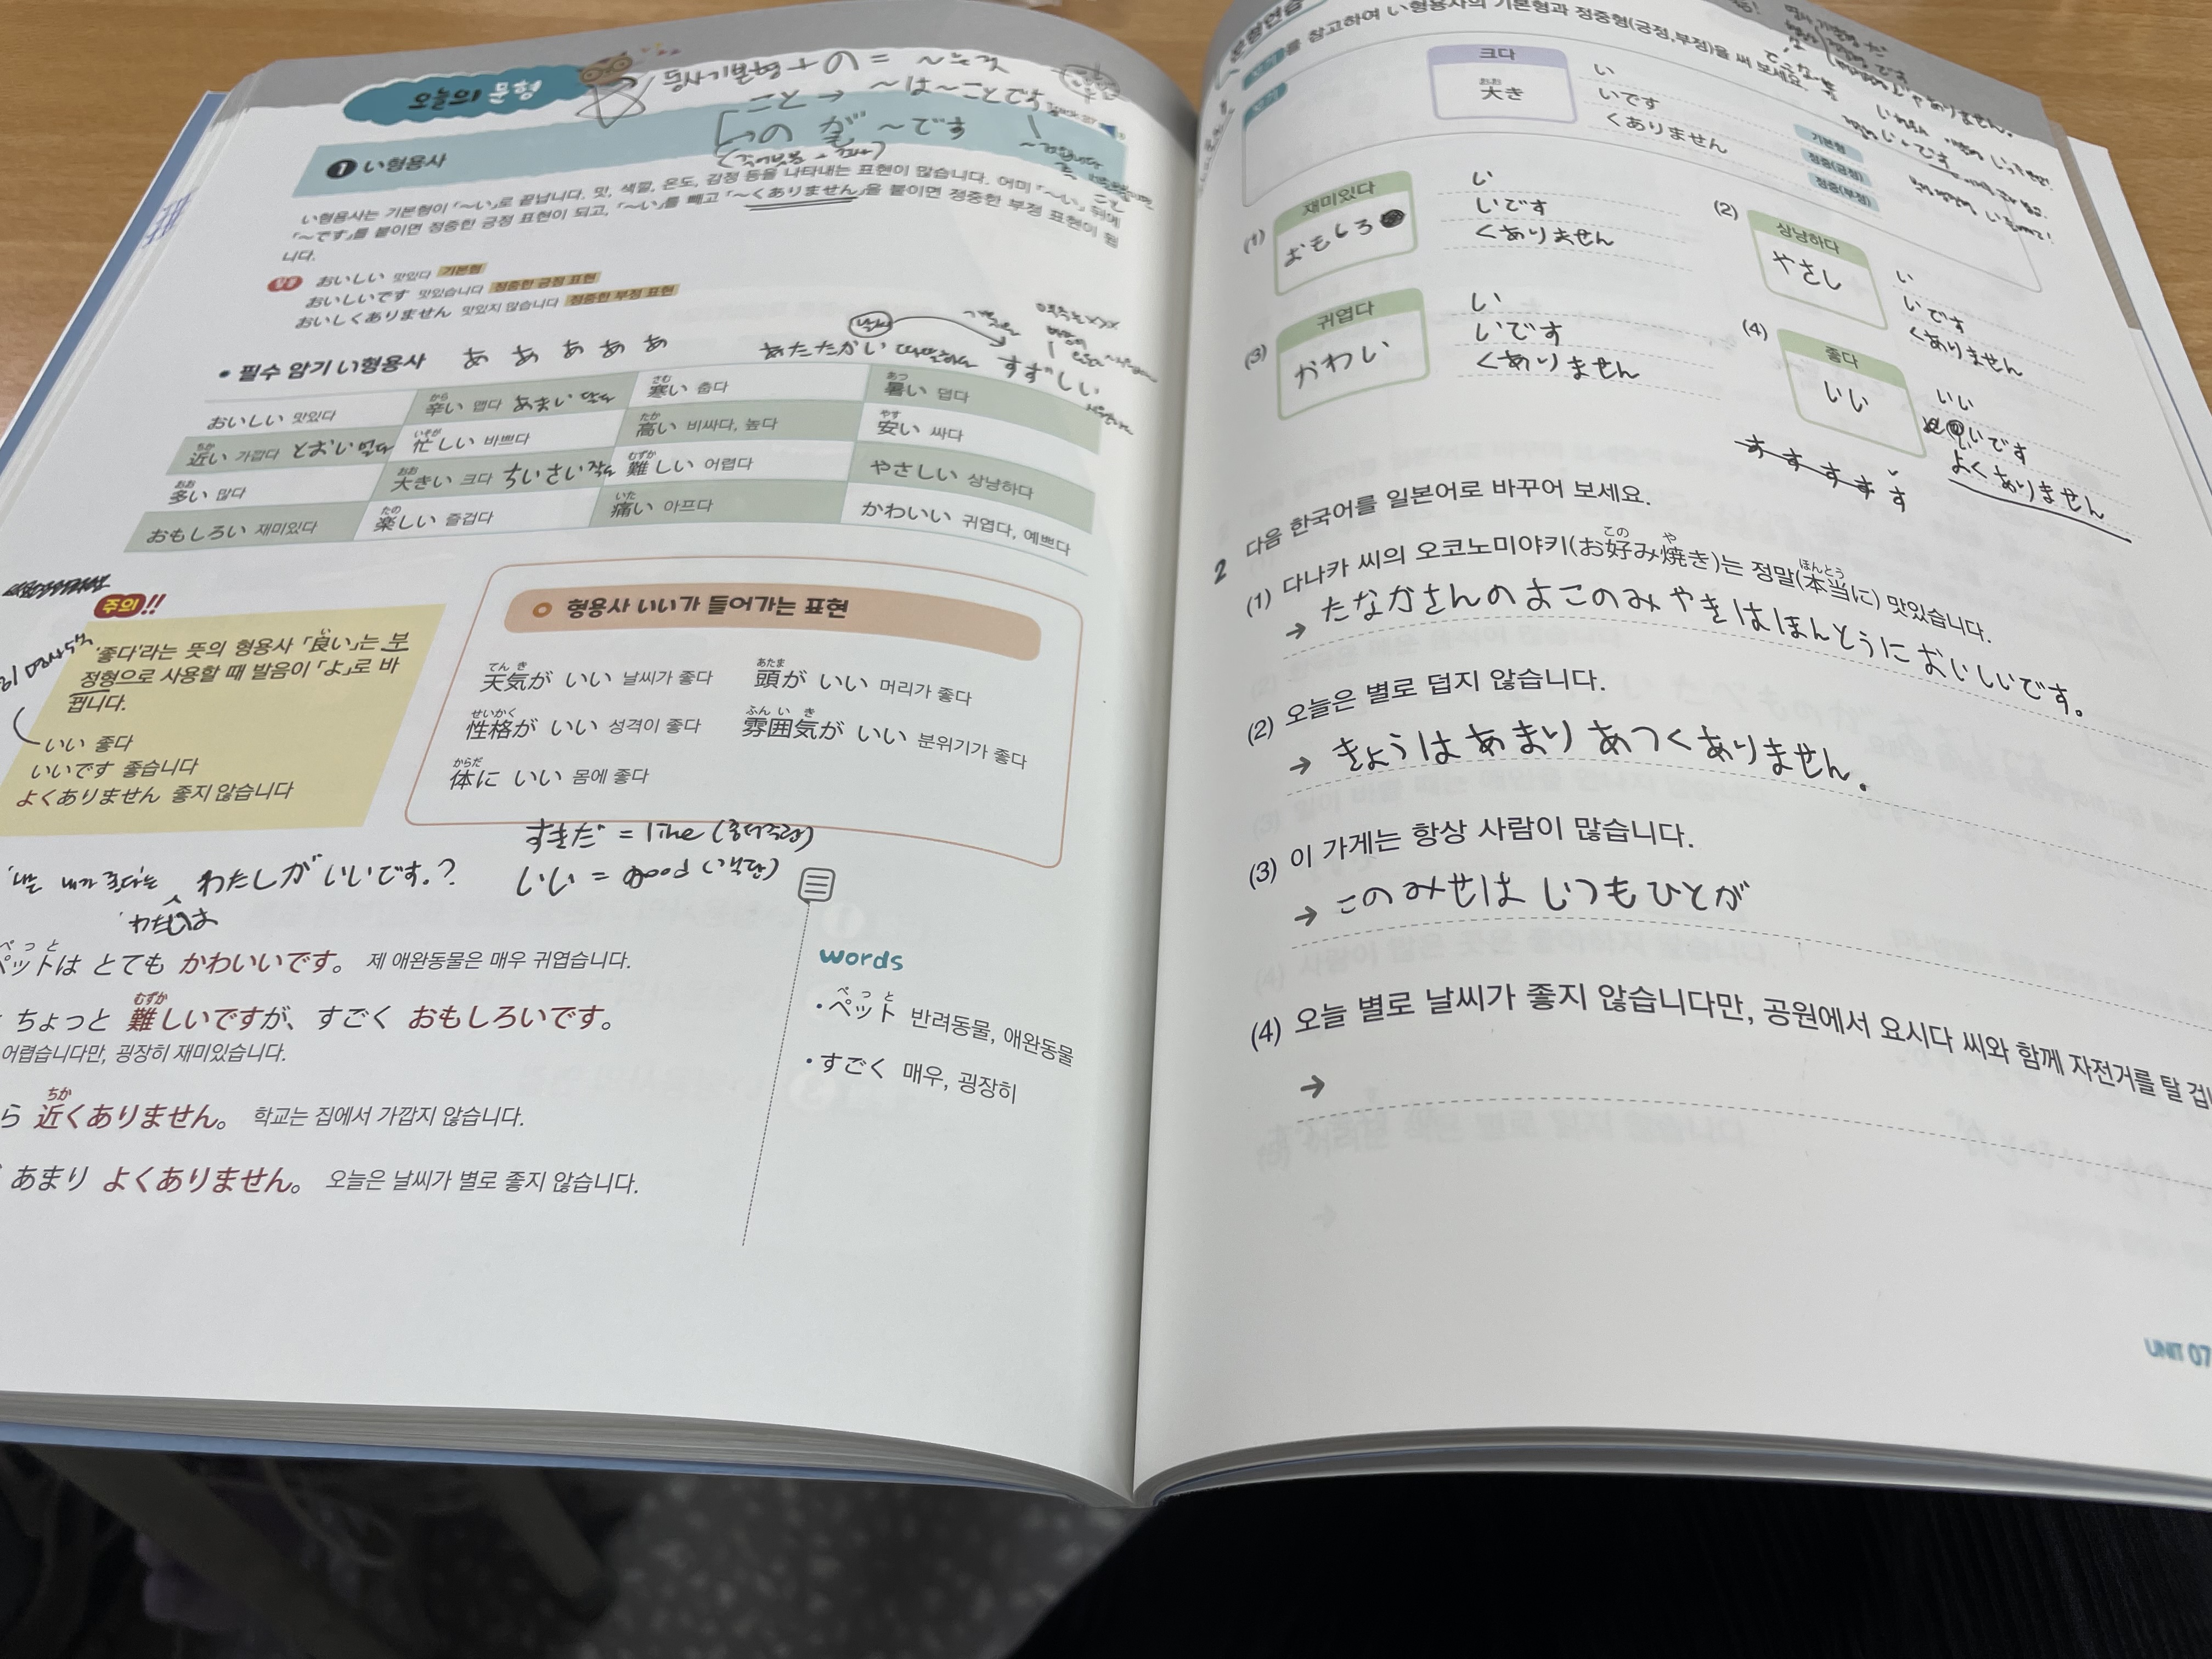 오늘의 문형
동사기본형 + の = ~는 것
こと → ~は~ことです
の が ~です
❶ い형용사
い형용사는 기본형이 「~い」로 끝납니다. 맛, 색깔, 온도, 감정 등을 나타내는 표현이 많습니다. 어미 「~い」 뒤에
「~です」를 붙이면 정중한 긍정 표현이 되고, 「~い」를 빼고 「~くありません」을 붙이면 정중한 부정 표현이 됩
니다.
おいしい 맛있다 기본형
おいしいです 맛있습니다 정중한 긍정 표현
おいしくありません 맛있지 않습니다 정중한 부정 표현
• 필수 암기 い형용사 あ あ あ あ あ
날씨
あたたかい 따뜻하다 すずしい
おいしい 맛있다 辛い 맵다 あまい 달다 寒い 춥다 暑い 덥다
から さむ あつ
近い 가깝다 とおい 멀다 忙しい 바쁘다 高い 비싸다, 높다 安い 싸다
ちか いそが たか やす
多い 많다 大きい 크다 ちいさい 작다 難しい 어렵다 やさしい 상냥하다
おお おお むずか
おもしろい 재미있다 楽しい 즐겁다 痛い 아프다 かわいい 귀엽다, 예쁘다
たの いた
주의!!
'좋다'라는 뜻의 형용사 「良い」는 부
い
정형으로 사용할 때 발음이 「よ」로 바
뀝니다.
いい 좋다
いいです 좋습니다
よくありません 좋지 않습니다
형용사 いい가 들어가는 표현
てん き あたま
天気が いい 날씨가 좋다 頭が いい 머리가 좋다
せいかく ふん い き
性格が いい 성격이 좋다 雰囲気が いい 분위기가 좋다
からだ
体に いい 몸에 좋다
すきだ = like
いい = good
わたしが いいです.?
わたしは
ぺっと
ペットは とても かわいいです。 제 애완동물은 매우 귀엽습니다.
むずか
ちょっと 難しいですが、すごく おもしろいです。
어렵습니다만, 굉장히 재미있습니다.
ちか
ら 近くありません。 학교는 집에서 가깝지 않습니다.
あまり よくありません。 오늘은 날씨가 별로 좋지 않습니다.
words
ぺっと
• ペット 반려동물, 애완동물
• すごく 매우, 굉장히
문형연습
보기를 참고하여 い형용사의 기본형과 정중형(긍정,부정)을 써 보세요.
보기
크다
おお
大き
い
いです
くありません
기본형
정중(긍정)
정중(부정)
(1) 재미있다
おもしろ
い
いです
くありません
(2) 상냥하다
やさし
い
いです
くありません
(3) 귀엽다
かわい
い
いです
くありません
(4) 좋다
いい
いい
いです
よくありません
す す す す す
2 다음 한국어를 일본어로 바꾸어 보세요.
この や ほんとう
(1) 다나카 씨의 오코노미야키(お好み焼き)는 정말(本当に) 맛있습니다.
→ たなかさんのおこのみやきはほんとうにおいしいです。
(2) 오늘은 별로 덥지 않습니다.
→ きょうはあまり あつくありません.
(3) 이 가게는 항상 사람이 많습니다.
→ このみせは いつもひとが
(4) 오늘 별로 날씨가 좋지 않습니다만, 공원에서 요시다 씨와 함께 자전거를 탈 겁
→
UNIT 07